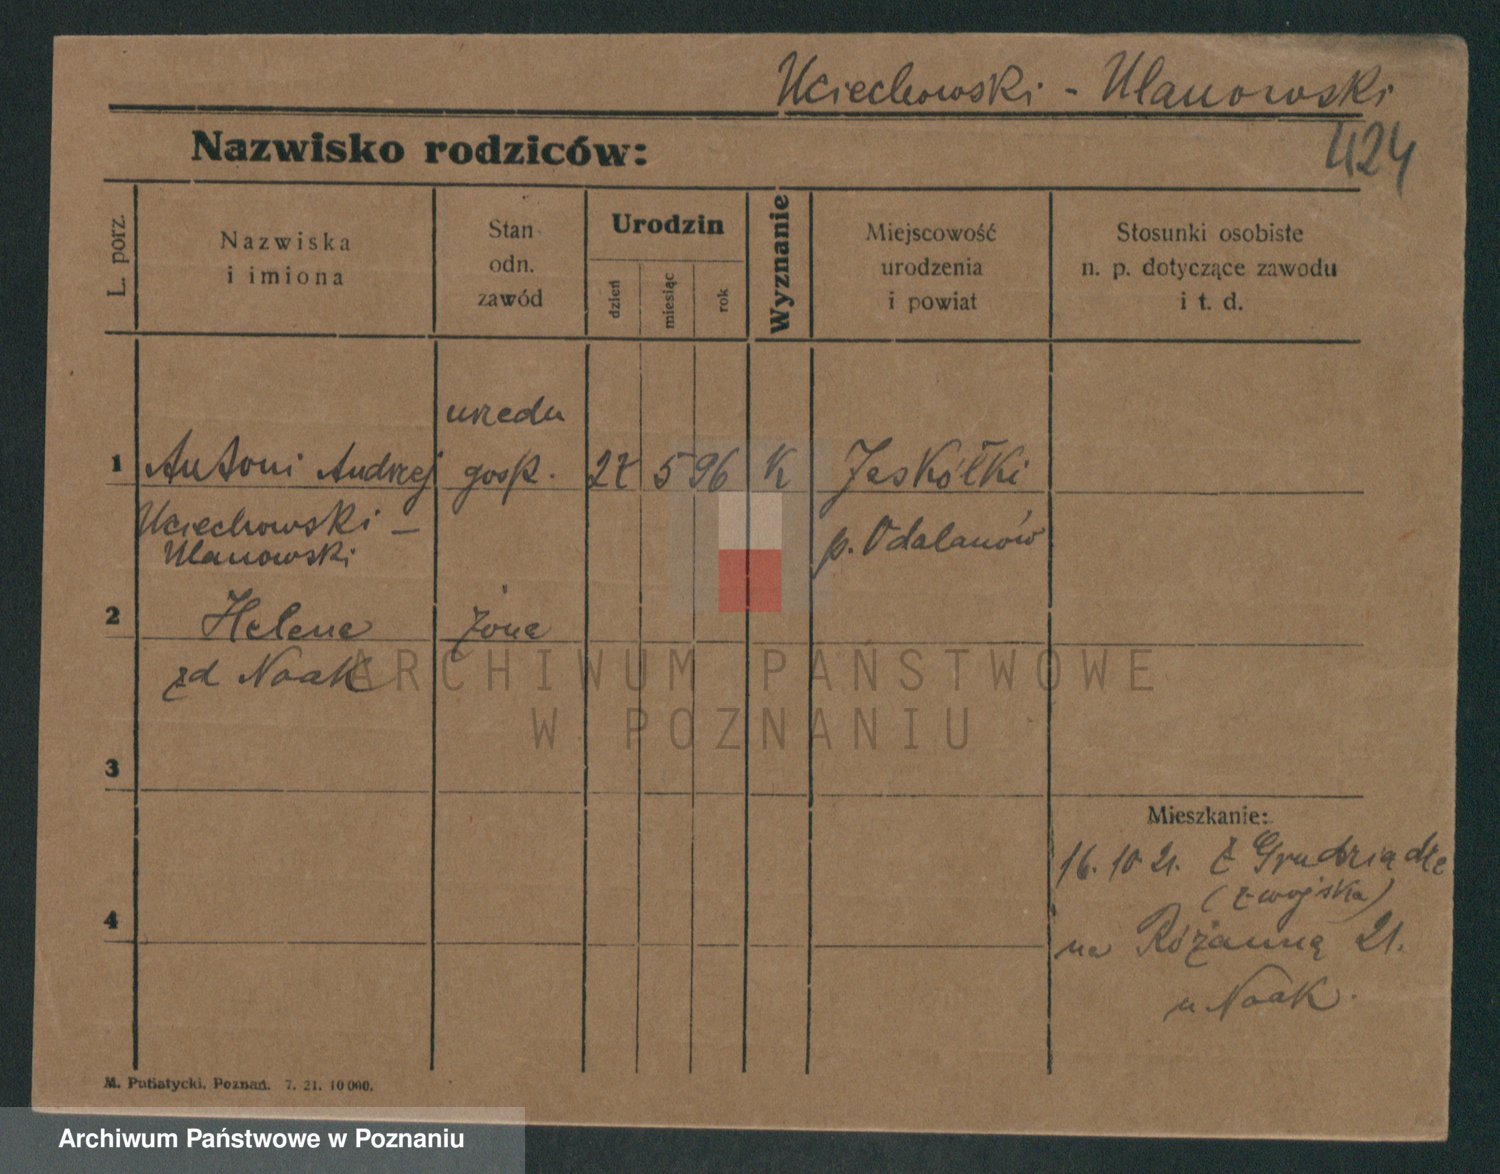 Uciechowski - Ulanowski
424
Nazwisko rodziców:
L. porz.
Nazwiska
i imiona
Stan
odn.
zawód
Urodzin
dzień
miesiąc
rok
Wyznanie
Miejscowość
urodzenia
i powiat
Stosunki osobiste
n. p. dotyczące zawodu
i t. d.
urzedn
1 Antoni Andrzej gosp. 27 5 96 K Jaskółki
Uciechowski – p. Odalanów
Ulanowski
2 Helena żona
zd Noak
ARCHIWUM PAŃSTWOWE
W POZNANIU
3
Mieszkanie:
16. 10 21. z Grudziądza
(z wojska)
4
na Różanną 21.
u Noak.
M. Putiatycki, Poznań. 7. 21. 10000.
Archiwum Państwowe w Poznaniu